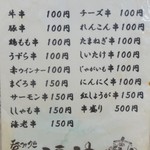 牛串 100円
豚串 100円
鶏もも串 100円
うずら串 100円
赤ウインナー 100円
まぐろ串 150円
サーモン串 150円
ししゃも串 150円
海老串 150円
チーズ串 100円
れんこん串 100円
たまねぎ串 100円
しいたけ串 100円
じゃがいも串 100円
にんにく串 100円
紅しょうが串 150円
串盛り 500円